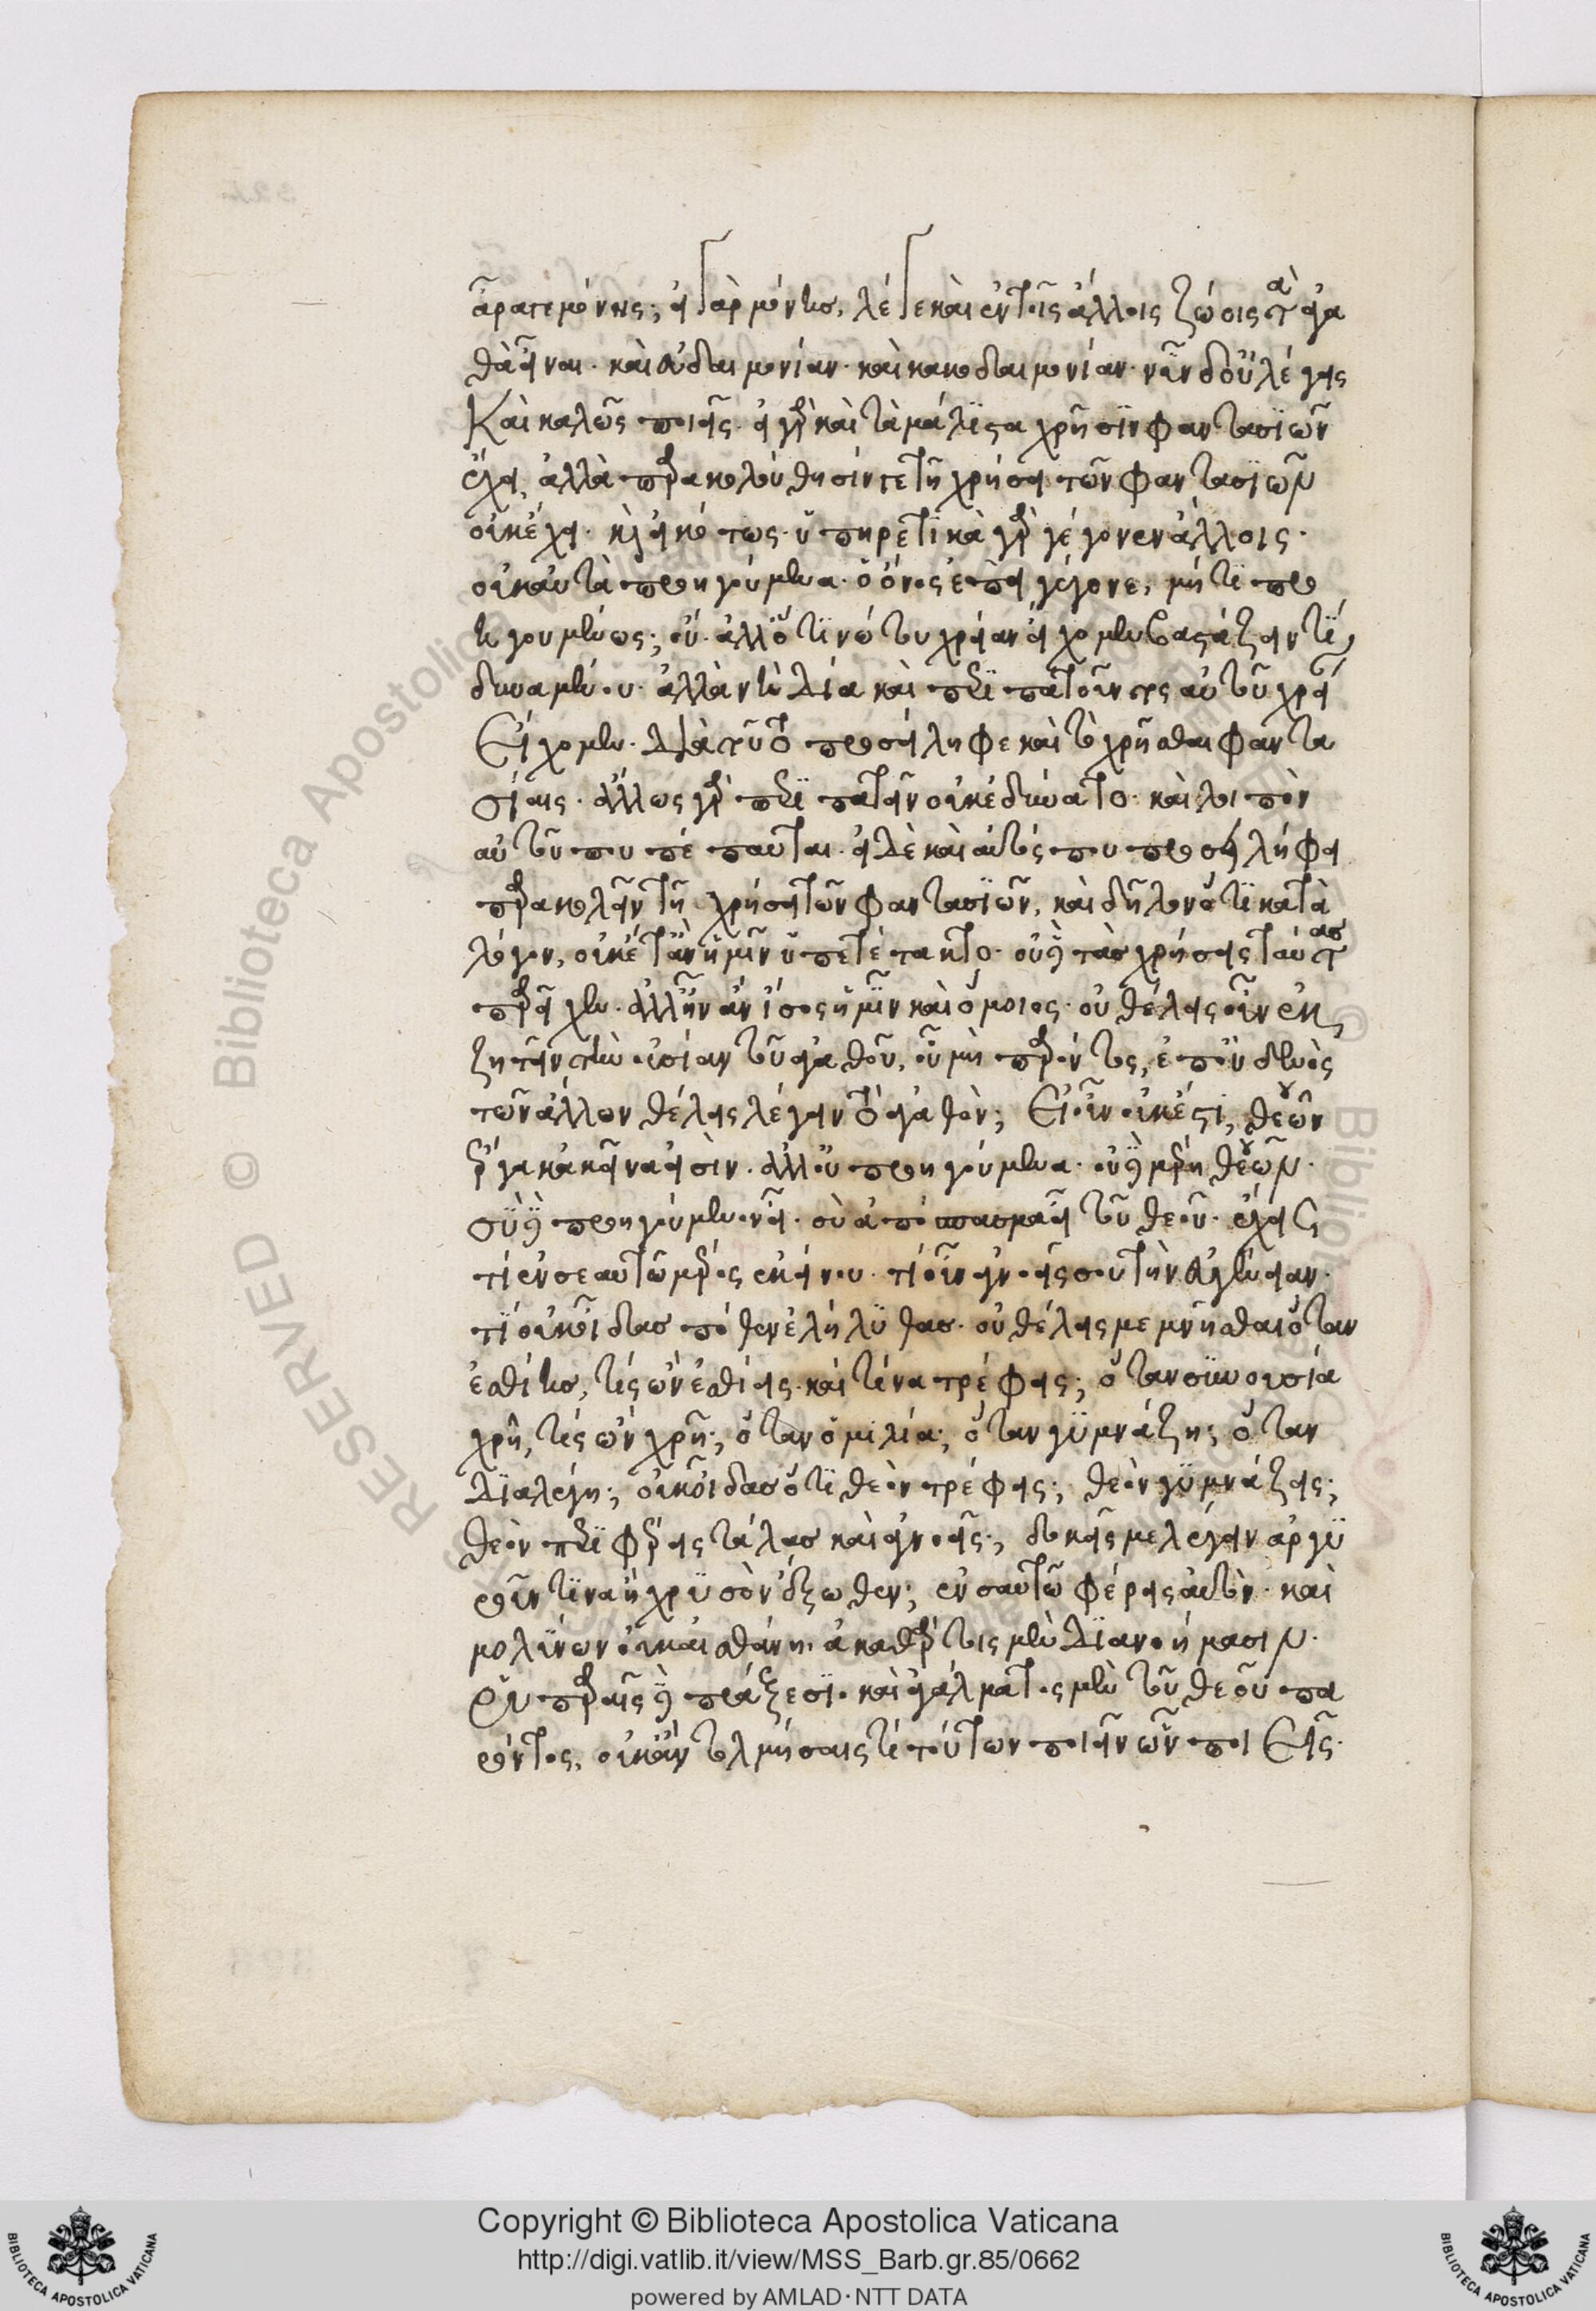 ἆρά γε μόνης; εἰ γὰρ μόνης, λέγε καὶ ἐν τοῖς ἄλλοις ζώοις τὰ ἀγα
θὰ εἶναι· καὶ εὐδαιμονίαν· καὶ κακοδαιμονίαν· νῦν δ' οὐ λέγεις
Καὶ καλῶς ποιεῖς· εἰ γὰρ καὶ τὰ μάλϊστα χρῆσϊν φαντασϊῶν
ἔχει, ἀλλὰ παρακολούθησίν γε τῆ χρήσει τῶν φαντασϊῶν
οὐκ ἔχει· κὶ εἰκότως· ὑπηρετικὰ γὰρ γέγονεν ἄλλοις·
οὐκ αὐτὰ προηγούμενα· ὁ ὄνος ἐπεὶ γέγονε, μή τι προ
ηγουμένως; οὔ· ἀλλ' ὅτι νώτου χρείαν εἴχομεν βαστάζειν τϊ
δυναμένου· ἀλλὰ νὴ Δία καὶ περϊπατοῦντος αὐτοῦ χρεί
Εἴχομεν· Διὰ τοῦτο προσείληφε καὶ τὸ χρῆσθαι φαντα
σίαις· ἄλλως γὰρ περϊπατεῖν οὐκ ἐδύνατο· καὶ λοιπὸν
αὐτοῦ που πέπαυται· εἰ δὲ καὶ αὐτός που προσειλήφει
παρακολεῖν τῆ χρήσει τῶν φαντασϊῶν, καὶ δῆλον ὅτι κατὰ
λόγον, οὐκέτ' ἂν ἡμῖν ὑπετέτακτο· οὐδὲ τὰς χρήσεις ταύτας
παρεῖχεν· ἀλλ' ἦν ἂν ἴσος ἡμῖν καὶ ὅμοιος· οὐ θέλεις οὖν ἐκεῖ
ζητεῖν τὴν οὐσίαν τοῦ ἀγαθοῦ, οὗ μὴ παρόντος, ἐπ' οὐδενὸς
τῶν ἄλλων θέλεις λέγειν τὸ ἀγαθὸν; Εἶ οὖν οὐκ ἔστι, θεῶν
ἔργα κἀκεῖνα εἰσὶν· ἀλλ' οὐ προηγούμενα· οὐδὲ μέρη θεῶν·
σὺ δὲ προηγούμενον εἶ· σὺ ἀπόσπασμα εἶ τοῦ θεοῦ· ἔχεις
τί ἐν σεαυτῶ μέρος ἐκείνου· τί οὖν ἀγνοεῖς σου τὴν εὐγένειαν·
τί οὐκ οἶδας πόθεν ἐλήλυθας· οὐ θέλεις μεμνῆσθαι ὅταν
ἐσθίης, τίς ὢν ἐσθίεις· καὶ τίνα τρέφεις; ὅταν συνουσία
χρῆ, τίς ὢν χρῆ; ὅταν ὁμιλία; ὅταν γυμνάζη; ὅταν
Διαλέγη; οὐκ οἶδας ὅτι θεὸν τρέφεις; θεὸν γυμνάζεις;
θεὸν περιφέρεις τάλας καὶ ἀγνοεῖς; δοκεῖς με λέγειν ἀργυ
ροῦν τινα ἢ χρυσὸν ἔξωθεν; ἐν σαυτῶ φέρεις αὐτὸν· καὶ
μολύνων οὐκ αἰσθάνη· ἀκαθάρτοις μὲν Διανοήμασιν·
ῥυπαραῖς δὲ πράξεσι· καὶ ἀγάλματος μὲν τοῦ θεοῦ πα
ρόντος, οὐκ ἂν τολμήσαις τι τούτων ποιεῖν ὧν ποιΕῖς·
Copyright © Biblioteca Apostolica Vaticana
http://digi.vatlib.it/view/MSS_Barb.gr.85/0662
powered by AMLAD·NTT DATA